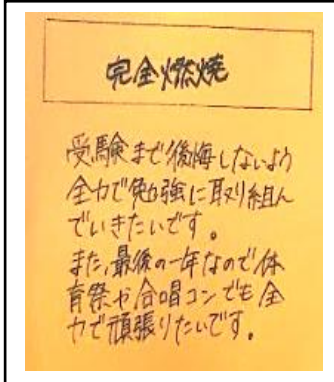 完全燃焼
受験まで後悔しないよう
全力で勉強に取り組ん
でいきたいです。
また、最後の一年なので体
育祭や合唱コンでも全
力で頑張りたいです。